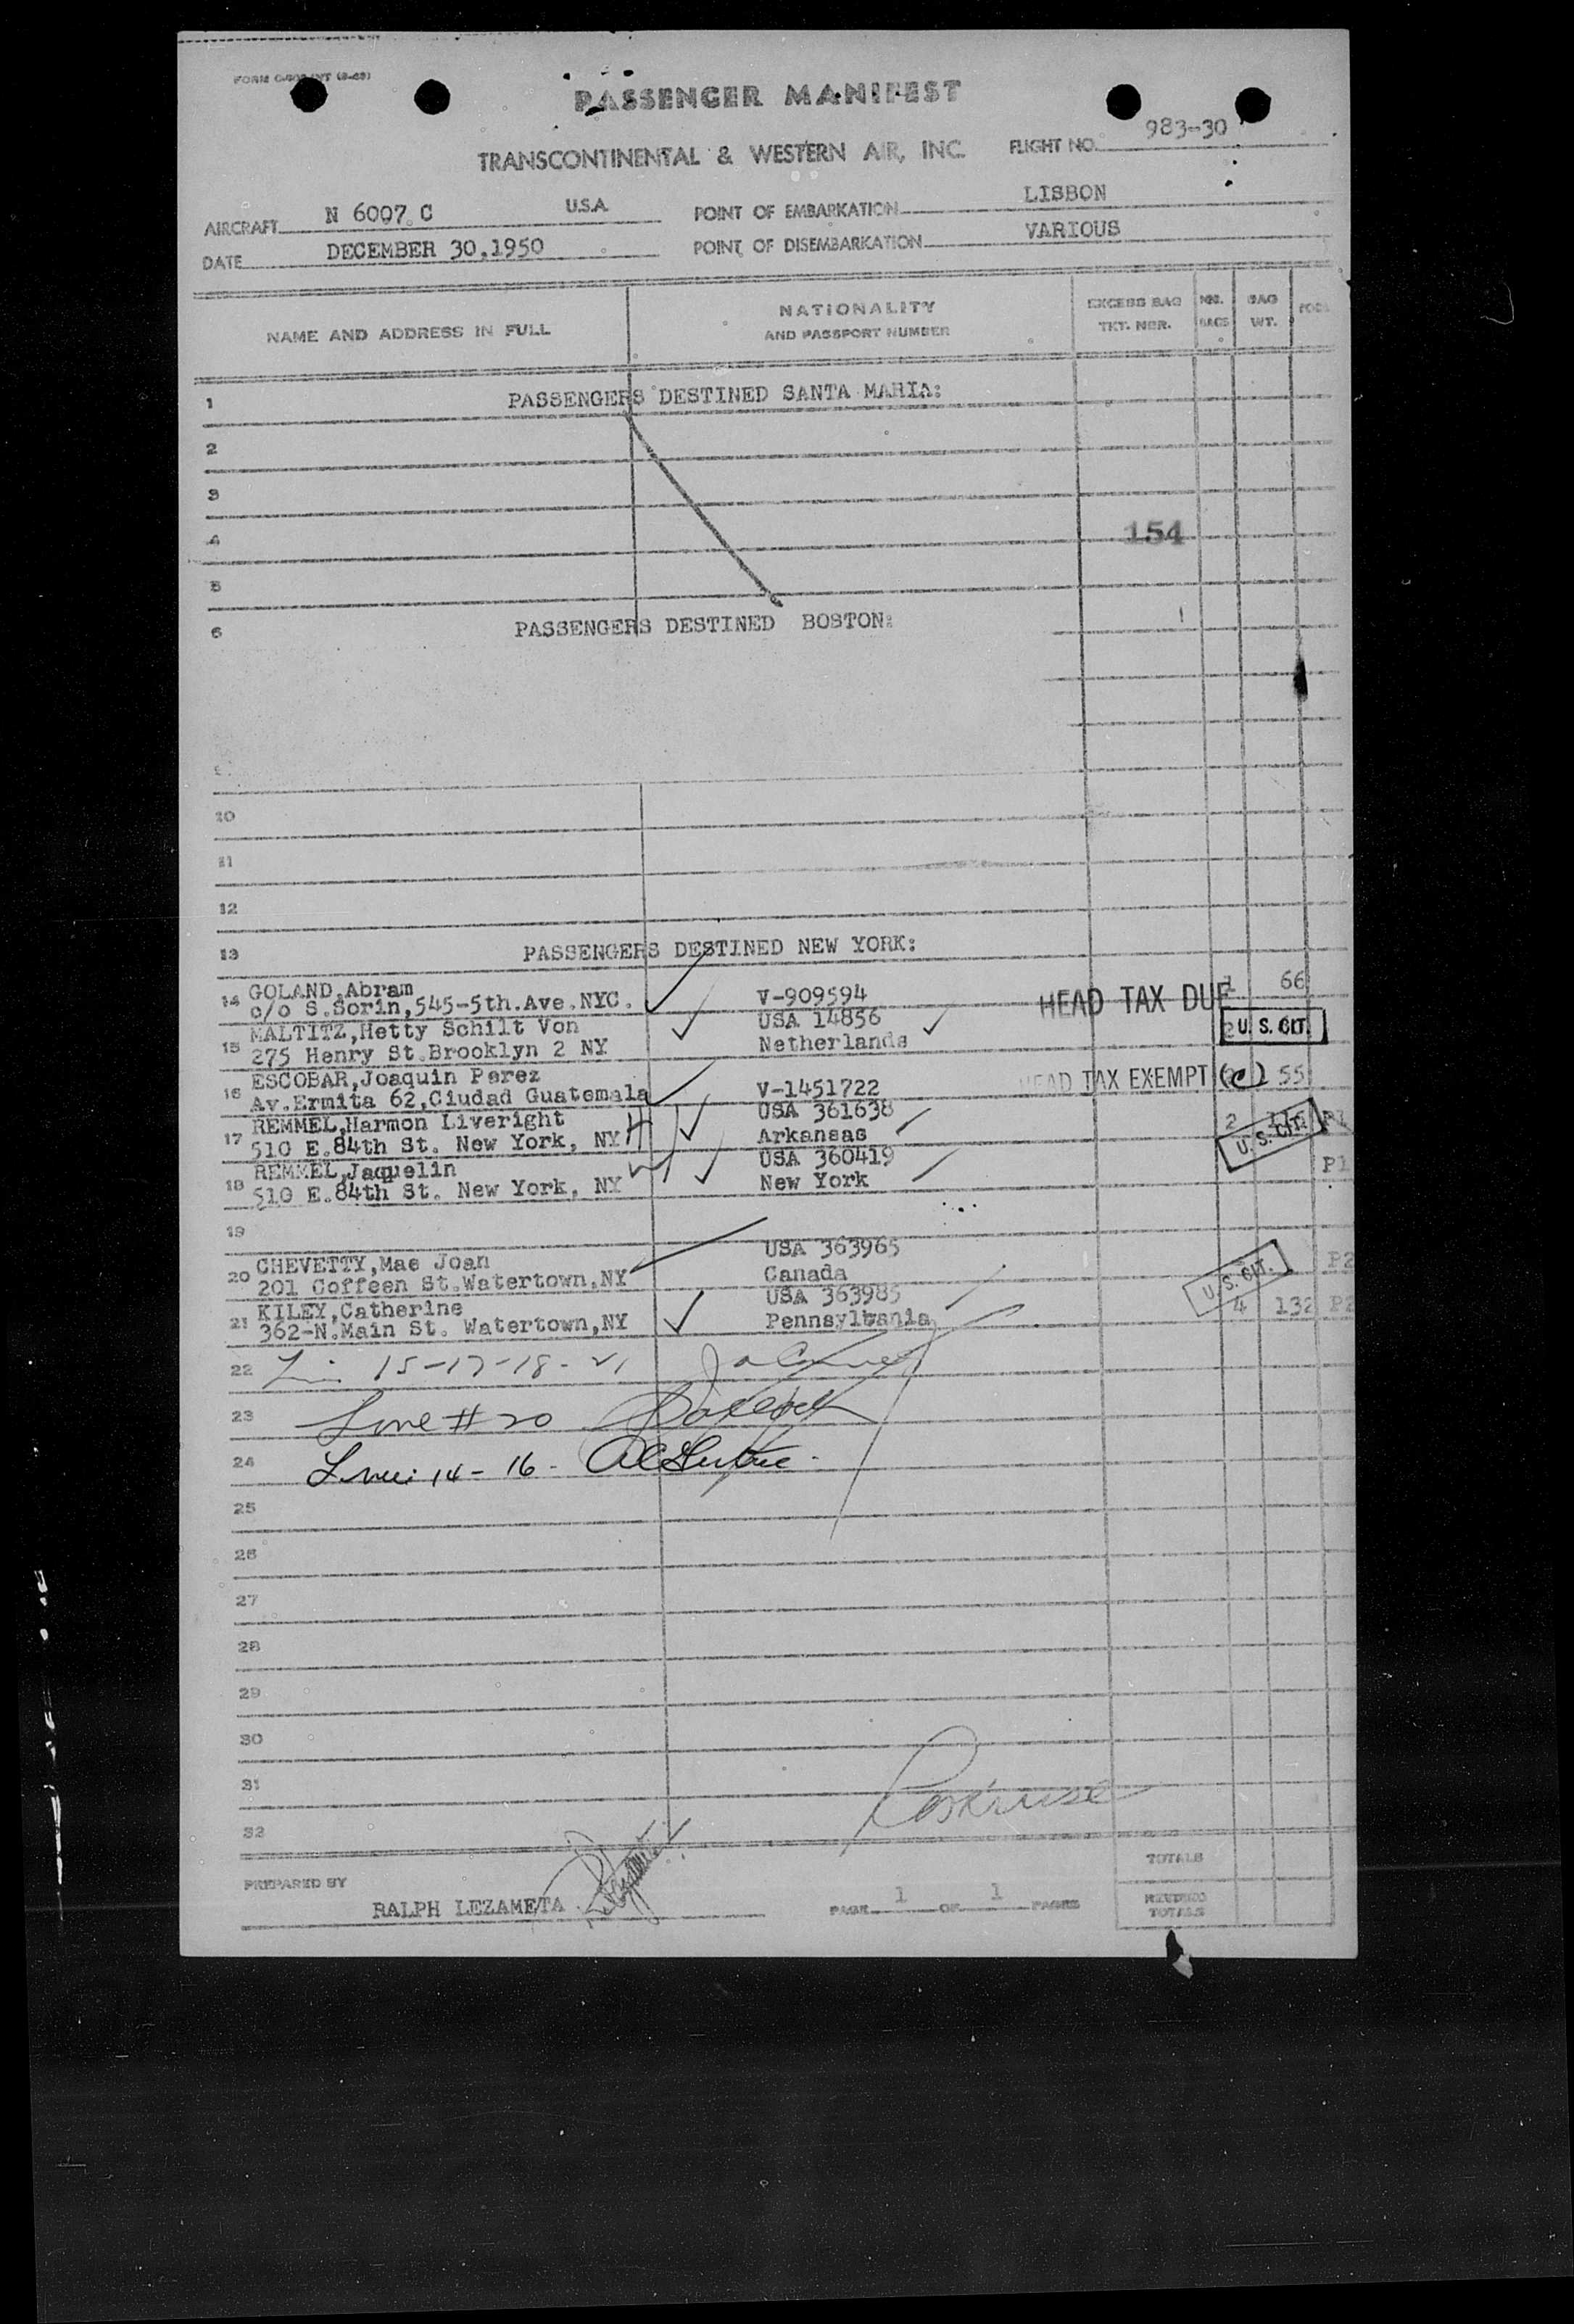 PASSENGER MANIFEST
983-30
TRANSCONTINENTAL & WESTERN AIR, INC. FLIGHT NO.
AIRCRAFT N 6007 C U.S.A. POINT OF EMBARKATION LISBON
DATE DECEMBER 30,1950 POINT OF DISEMBARKATION VARIOUS
NAME AND ADDRESS IN FULL NATIONALITY AND PASSPORT NUMBER EXCESS BAG TKT. NBR. BAGS BAG WT.
1 PASSENGERS DESTINED SANTA MARIA:
2
3
4 154
5
6 PASSENGERS DESTINED BOSTON:
10
11
12
13 PASSENGERS DESTINED NEW YORK:
14 GOLAND,Abram
c/o S.Sorin,545-5th.Ave.NYC. V-909594 HEAD TAX DUE 1 66
15 MALTITZ,Hetty Schilt Von USA 14856 U.S. CIT.
275 Henry St.Brooklyn 2 NY Netherlands
16 ESCOBAR,Joaquin Perez
Av.Ermita 62,Ciudad Guatemala V-1451722 HEAD TAX EXEMPT (c) 55
17 REMMEL,Harmon Liveright USA 361638 2
510 E.84th St. New York, NY Arkansas U.S. CIT.
18 REMMEL,Jaquelin USA 360419 P1
510 E.84th St. New York, NY New York
19
20 CHEVETTY,Mae Joan USA 363965 P2
201 Coffeen St.Watertown,NY Canada U.S. CIT.
21 KILEY,Catherine USA 363985 4 132 P2
362-N.Main St. Watertown,NY Pennsylvania
22 15-17-18-21
23 Line #20
24 14-16
25
26
27
28
29
30
31
32
TOTALS
PREPARED BY RALPH LEZAMETA PAGE 1 OF 1 PAGES
TOTALS